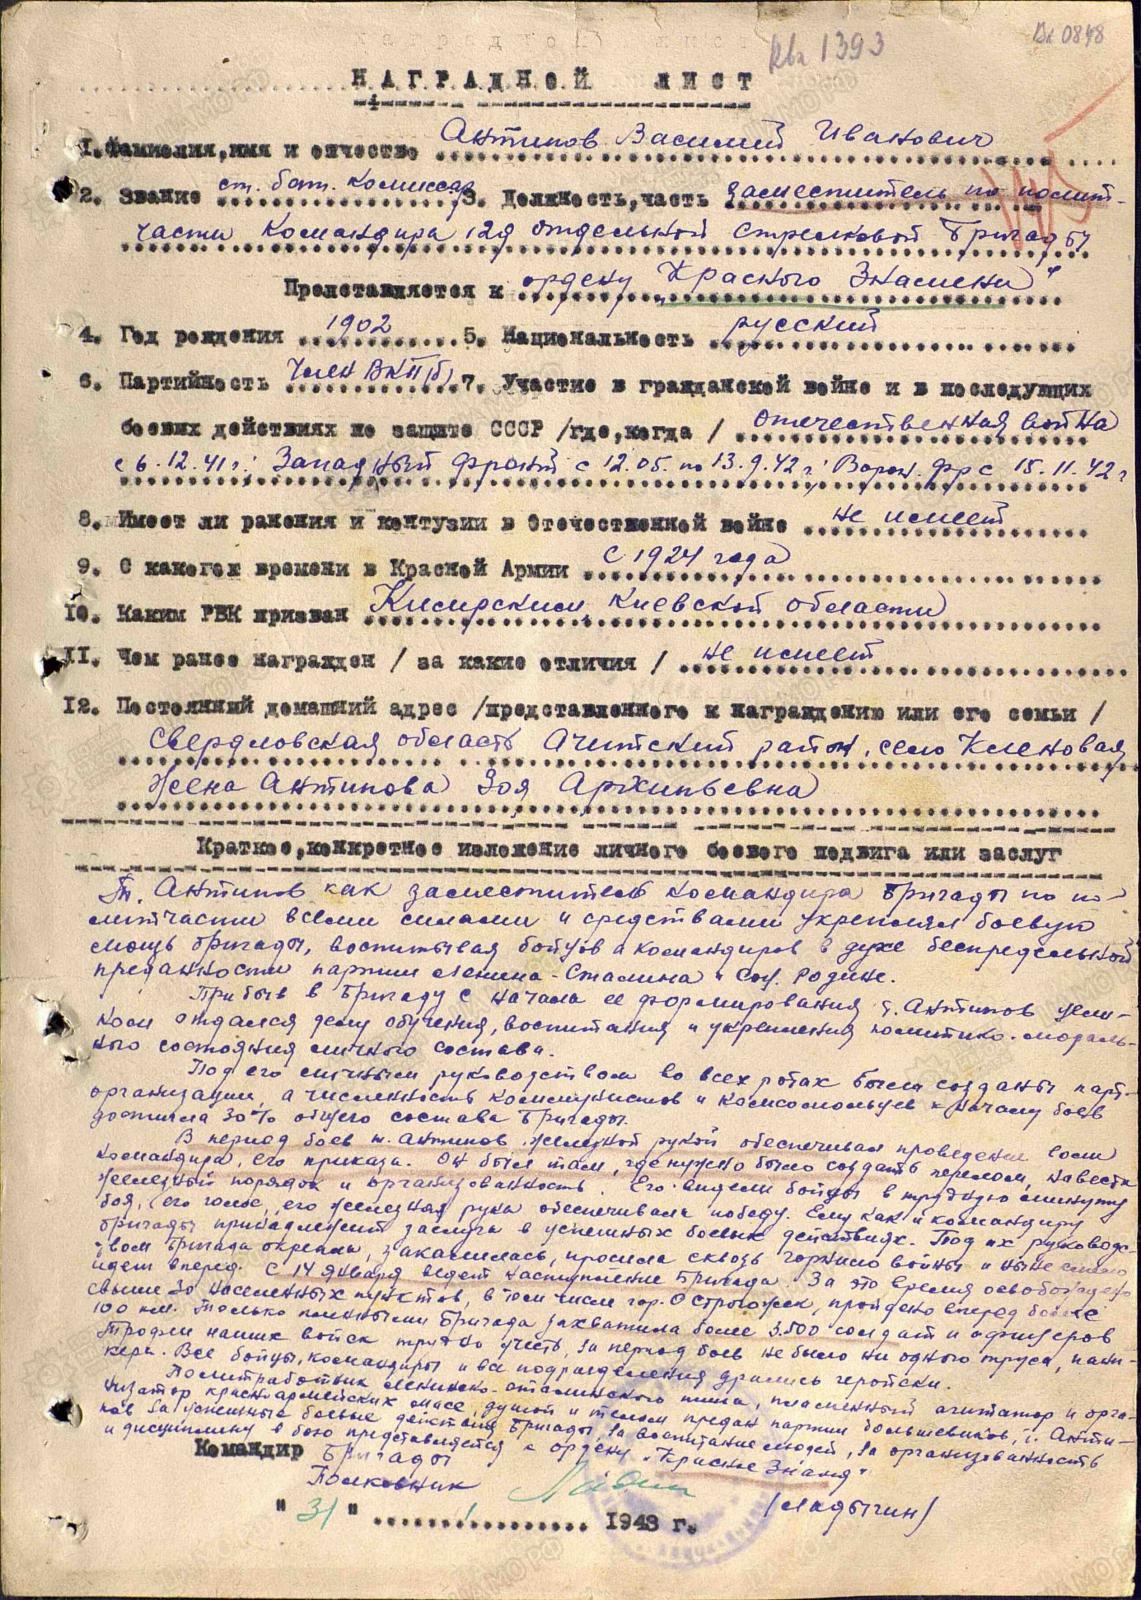 Вх 0848
1393
НАГРАДНОЙ ЛИСТ
1. Фамилия, имя и отчество Антипов Василий Иванович
2. Звание ст. бат. комиссар 3. Должность, часть Заместитель по полит-
части Командира 129 отдельной стрелковой Бригады
Представляется к ордену "Красного Знамени"
4. Год рождения 1902 5. Национальность русский
6. Партийность Член ВКП(б) 7. Участие в гражданской войне и в последующих
боевых действиях по защите СССР /где, когда/ отечественная война
с 6.12.41 г. Западный фронт с 12.05. по 13.9.42 г; Ворон. фр с 15.11.42 г
8. Имеет ли ранения и контузии в Отечественной войне не имеет
9. С какого времени в Красной Армии с 1924 года
10. Каким РВК призван Киевской области
11. Чем ранее награжден /за какие отличия/ не имеет
12. Постоянный домашний адрес /представленного к награждению или его семьи/
Свердловская область Ачитский район, село Кленовая
Жена Антипова Зоя Архиповна
Краткое, конкретное изложение личного боевого подвига или заслуг
Т. Антипов как заместитель командира Бригады по по-
литчасти всеми силами и средствами укреплял боевую
мощь бригады, воспитывая бойцов и командиров в духе беспредельной
преданности партии Ленина-Сталина и Соц. Родине.
Прибыв в Бригаду с начала ее формирования т. Антипов цели-
ком отдался делу обучения, воспитания и укрепления политико-мораль-
ного состояния личного состава.
Под его личным руководством во всех ротах были созданы парт-
организации, а численность коммунистов и комсомольцев к началу боев
достигла 30% общего состава Бригады.
В период боев т. Антипов железной рукой обеспечивал проведение воли
командира, его приказа. Он был там, где нужно было создать перелом, навести
железный порядок и организованность. Его видели бойцы в трудную минуту
боя, его голос, его железная рука обеспечивала победу. Ему как и командиру
бригады принадлежит заслуга в успешных боевых действиях. Под их руководс-
твом Бригада окрепла, закалилась, прошла сквозь горнило войны и ныне смело
идет вперед. С 14 января ведет наступление Бригада. За это время освобождено
свыше 30 населенных пунктов, в том числе гор. Острогожск, пройдено вперед более
100 км. Только пленными Бригада захватила более 3.500 солдат и офицеров
Трофеи наших войск трудно учесть, за период боев не было ни одного труса, пани-
кера. Все бойцы, командиры и все подразделения дрались геройски.
Политработник ленинско-сталинского типа, пламенный агитатор и орга-
низатор красноармейских масс, душой и телом предан партии большевиков, т. Анти-
пов за успешные боевые действия Бригады, за воспитание людей, за организованность
и дисциплину в бою представляется к ордену "Красное Знамя"
Командир Бригады
Полковник (Ладыгин)
"31" 1 1943 г.